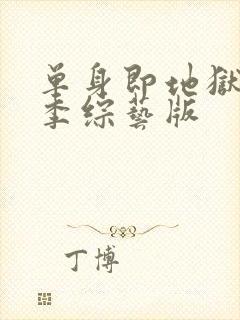 单身即地獄
季综藝版
丁博